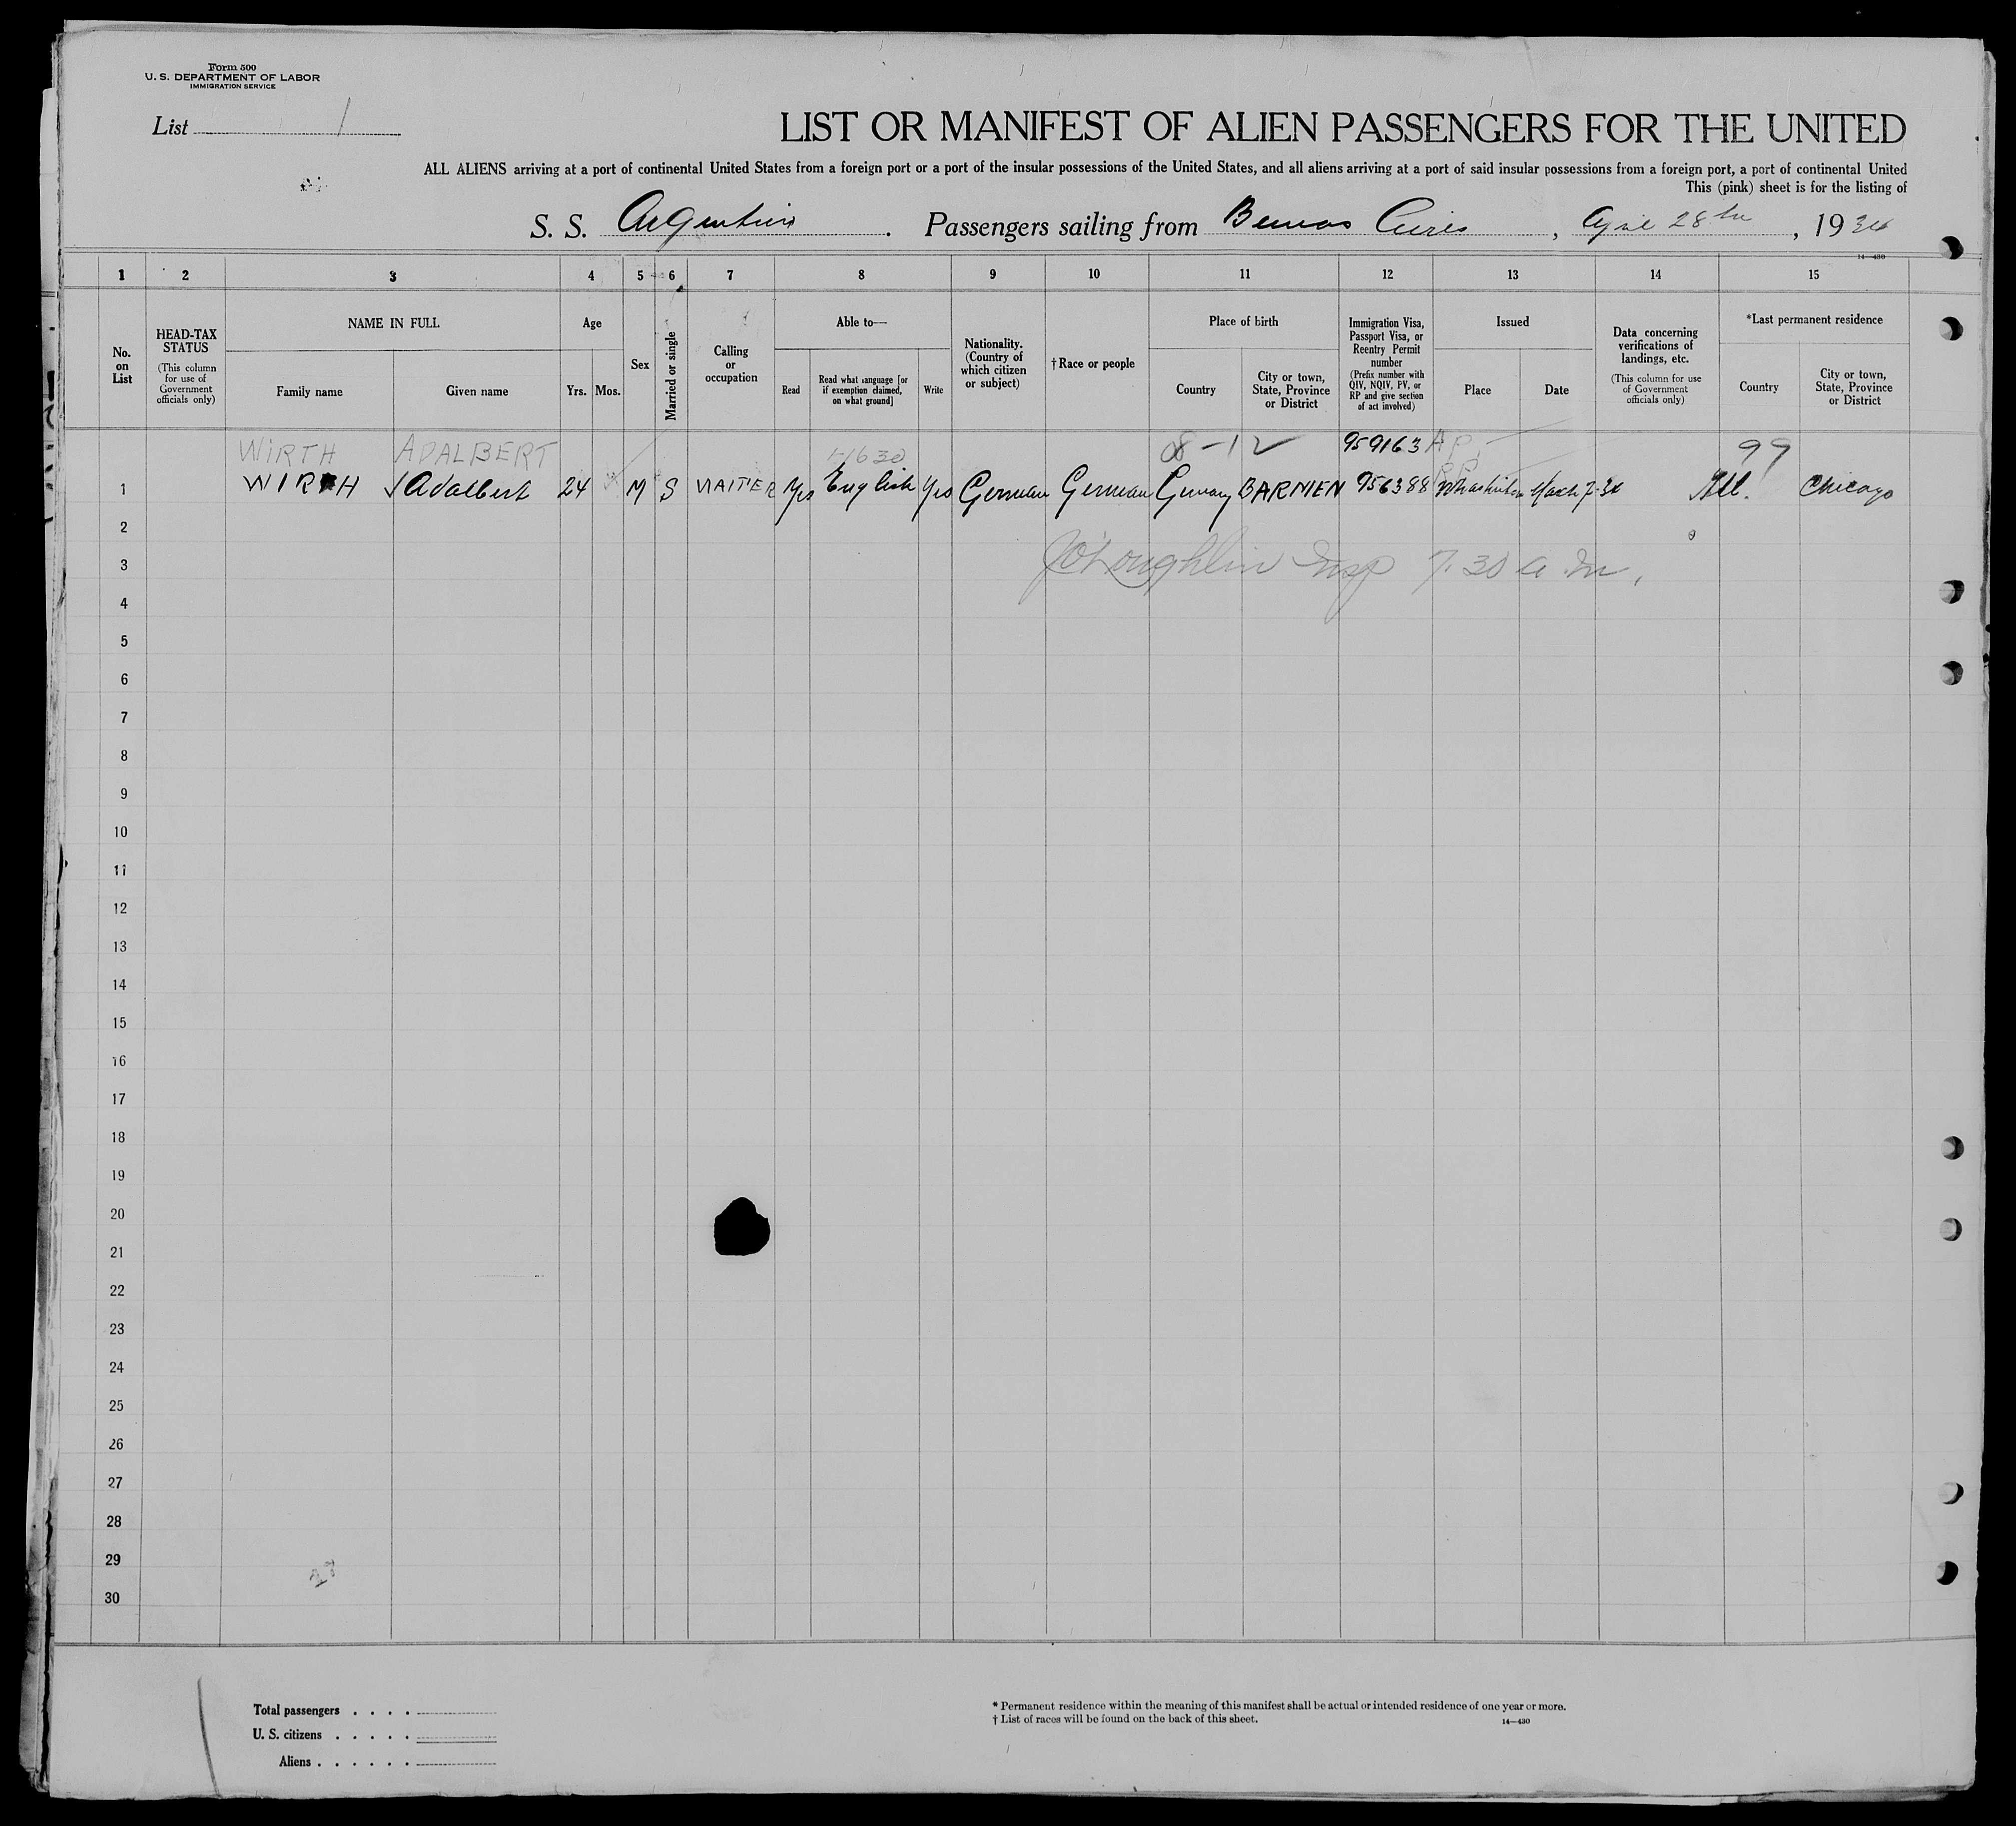 Form 500
U. S. DEPARTMENT OF LABOR
IMMIGRATION SERVICE
List 1
LIST OR MANIFEST OF ALIEN PASSENGERS FOR THE UNITED
ALL ALIENS arriving at a port of continental United States from a foreign port or a port of the insular possessions of the United States, and all aliens arriving at a port of said insular possessions from a foreign port, a port of continental United
This (pink) sheet is for the listing of
S. S. Argentina . Passengers sailing from Buenos Aires , April 28th , 1934
14—430
1 2 3 4 5 6 7 8 9 10 11 12 13 14 15
No. on List
HEAD-TAX STATUS
(This column for use of Government officials only)
NAME IN FULL
Family name Given name
Age
Yrs. Mos.
Sex
Married or single
Calling or occupation
Able to—
Read
Read what language [or if exemption claimed, on what ground]
Write
Nationality. (Country of which citizen or subject)
† Race or people
Place of birth
Country
City or town, State, Province or District
Immigration Visa, Passport Visa, or Reentry Permit number
(Prefix number with QIV, NQIV, PV, or RP and give section of act involved)
Issued
Place Date
Data concerning verifications of landings, etc.
(This column for use of Government officials only)
*Last permanent residence
Country
City or town, State, Province or District
WIRTH ADALBERT 08-12 959163 99
1 WIRTH Adalbert 24 M S WAITER Yes English Yes German German Germany BARMEN 956388 Washington March 7-34 Ill. Chicago
2
JO'Loughlin Insp 7.30 a.m.
3
4
5
6
7
8
9
10
11
12
13
14
15
16
17
18
19
20
21
22
23
24
25
26
27
28
29
30
Total passengers . . . .
U. S. citizens . . . . .
Aliens . . . . . .
* Permanent residence within the meaning of this manifest shall be actual or intended residence of one year or more.
† List of races will be found on the back of this sheet.
14—430